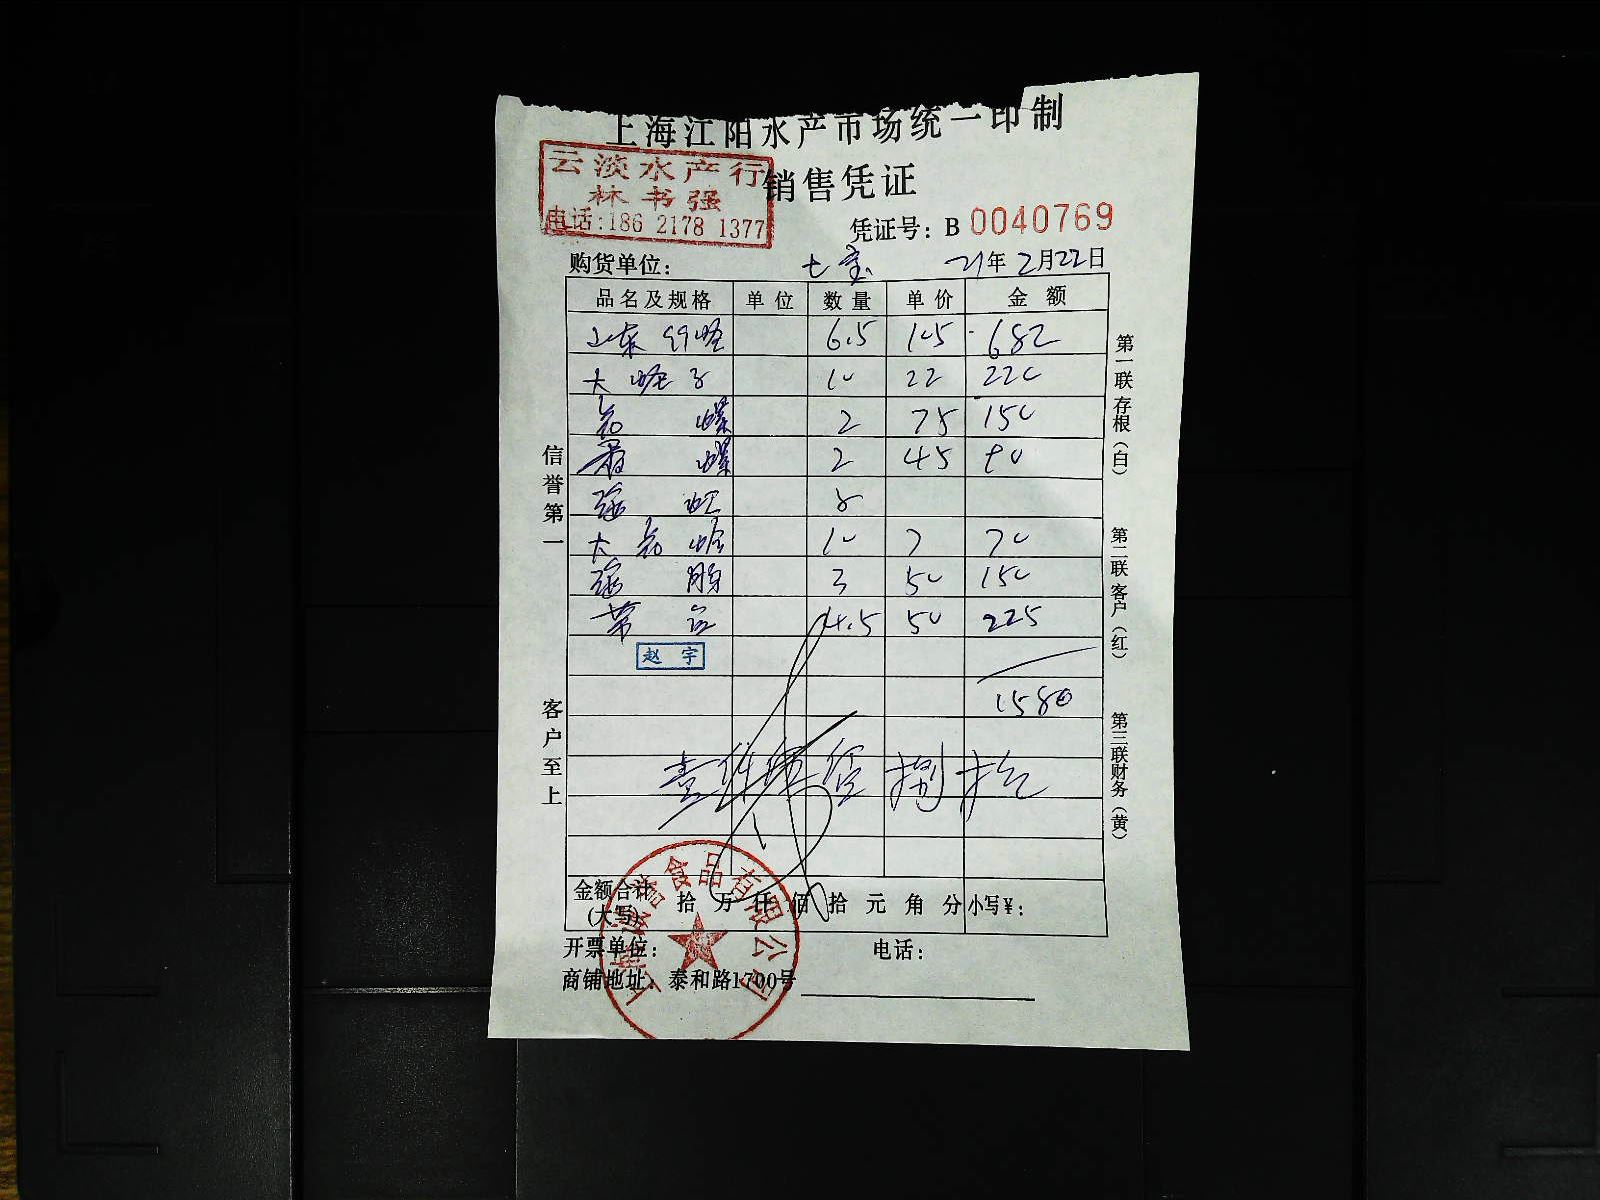 上海江阳水产市场统一印制
云淡水产行
林书强
电话:186 2178 1377
销售凭证
凭证号: B 0040769
购货单位: 七宝 21年2月22日
品名及规格 单位 数量 单价 金额
山东 6.5 105 682
大蛏子 10 22 220
花螺 2 75 150
螺 2 45 90
虹 8
大花蛤 10 7 70
3 50 150
4.5 50 225
赵宇
1580
壹仟伍佰捌拾
金额合计
(大写) 拾 万 仟 佰 拾 元 角 分 小写¥:
开票单位: 电话:
商铺地址: 泰和路1700号
信誉第一
客户至上
第一联存根(白)
第二联客户(红)
第三联财务(黄)
食品有限公司